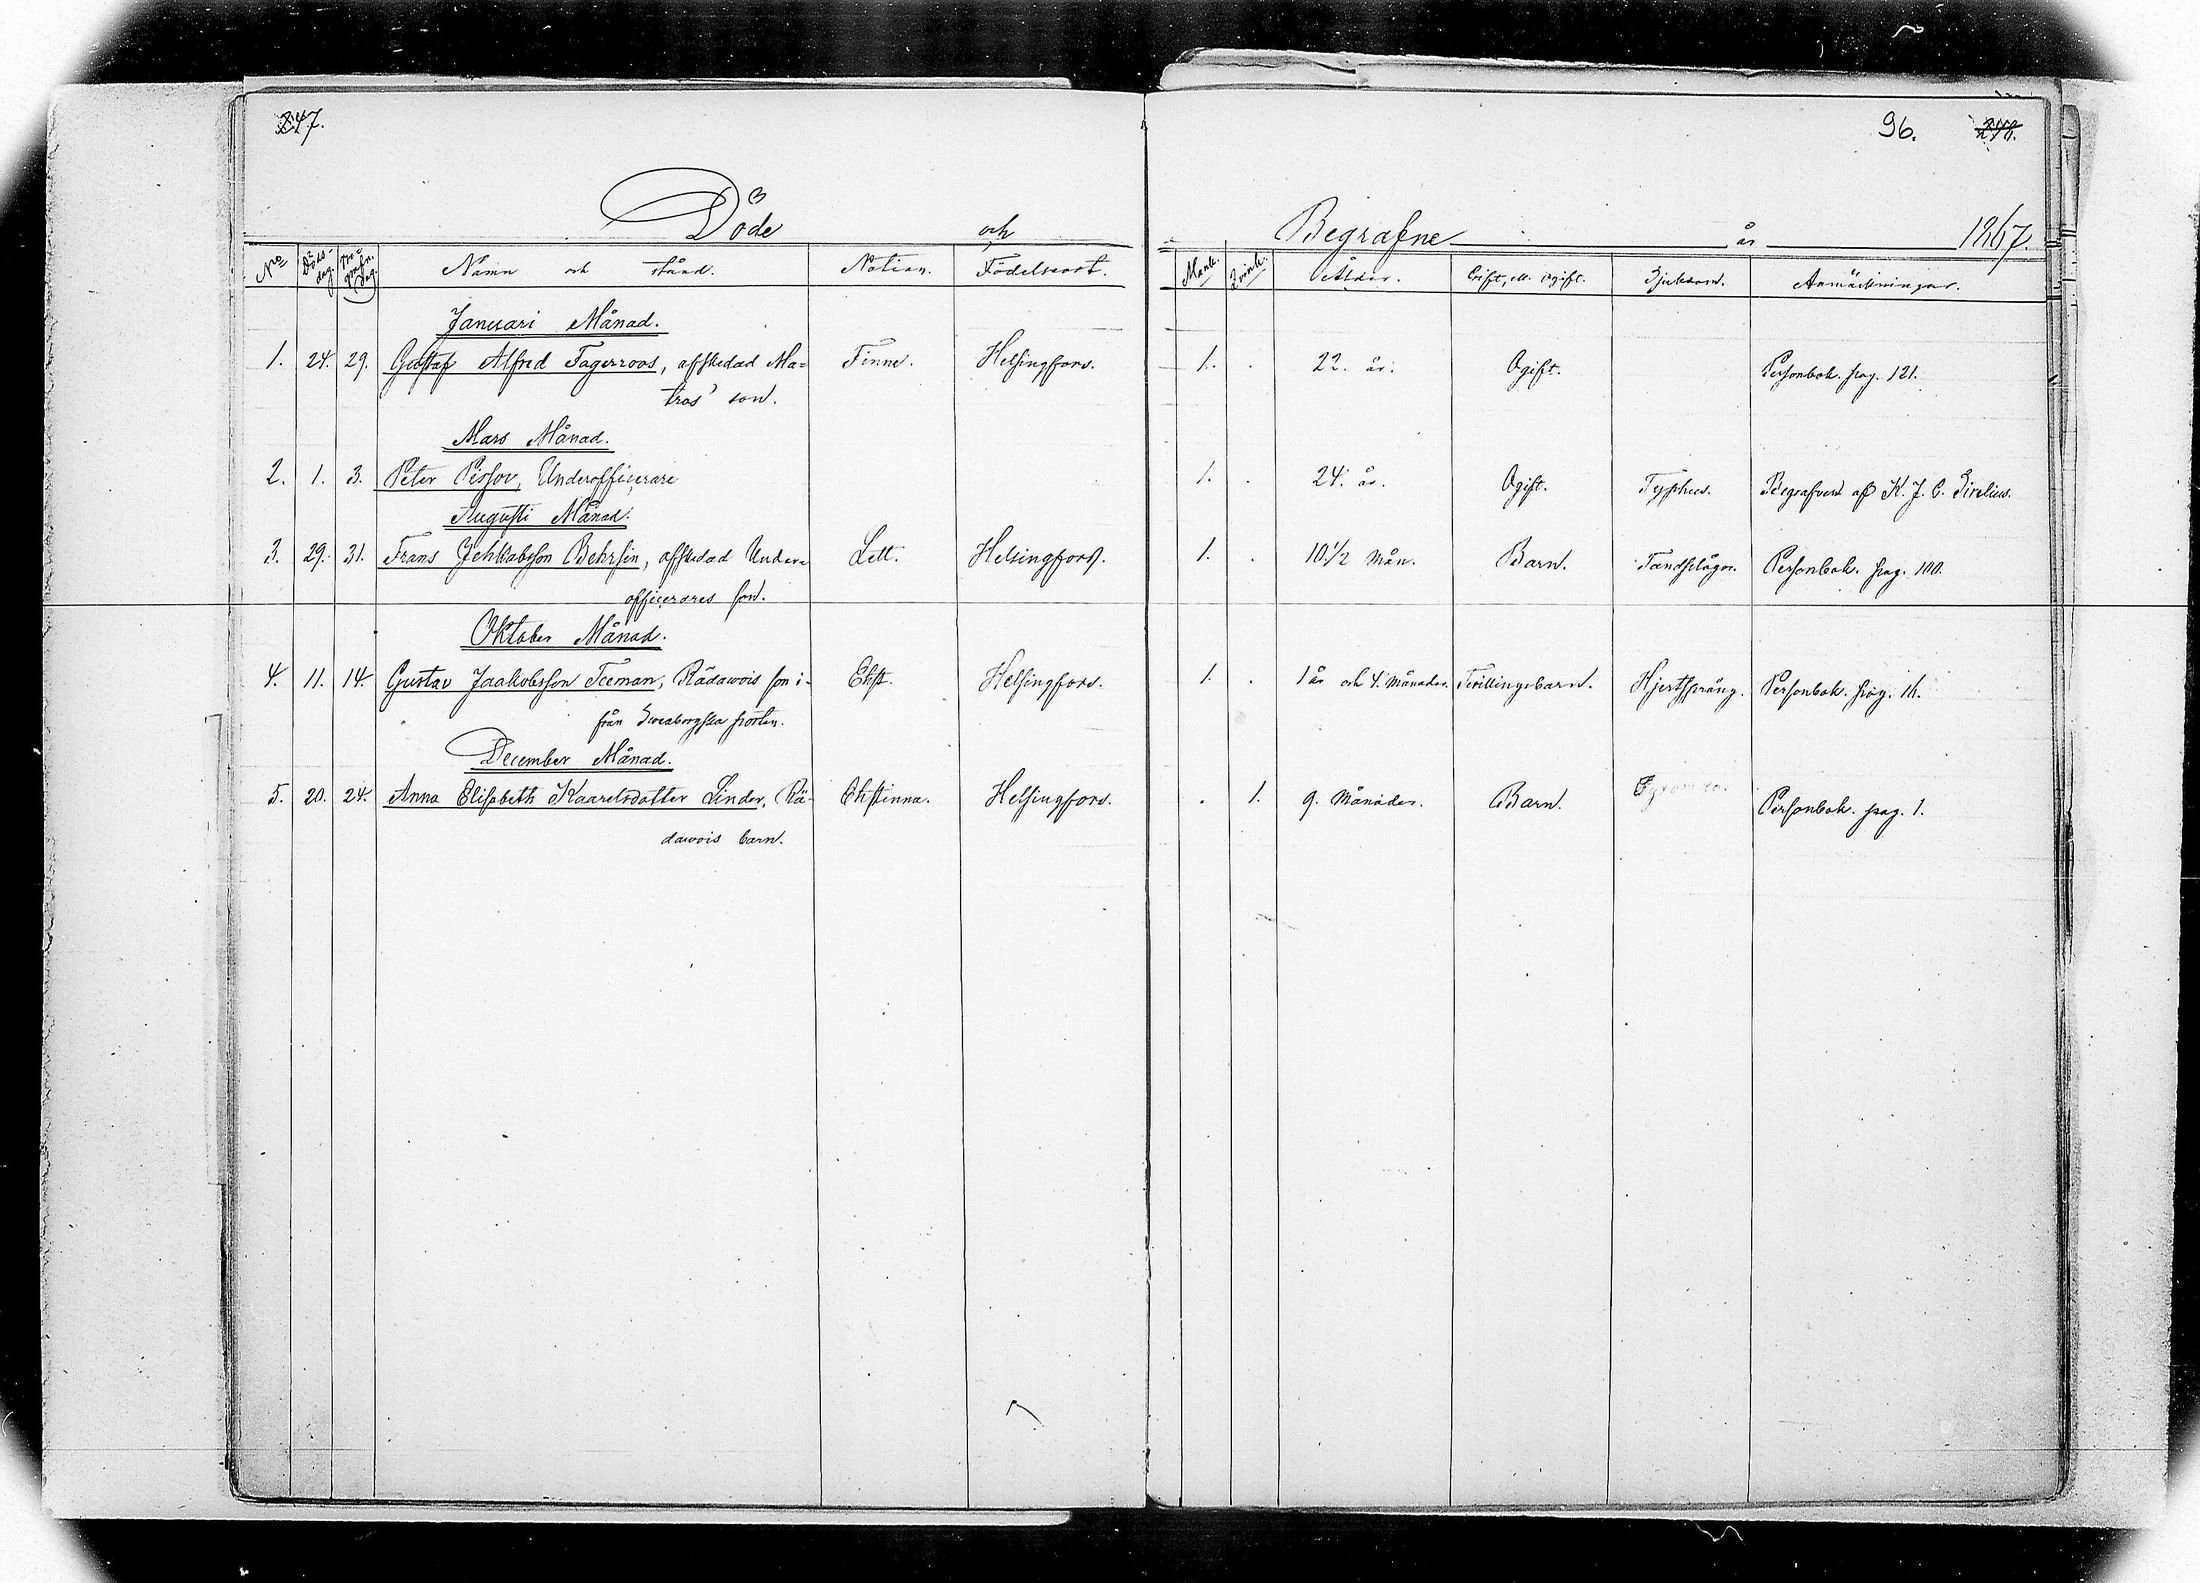 247.
96. 248.
Döde och Begrafne år 1867.
No Döds-dag. Be-grafn. dag. Namn och stånd. Nation. Födelseort. Mank. Qvink. Ålder. Gift, ell. ogift. Sjukdom. Anmärkningar.
Januari Månad.
1. 24. 29. Gustaf Alfred Fagerroos, afskedad Ma- Finne. Helsingfors. 1. . 22. år. Ogift. Personbok. pag. 121.
tros' son.
Mars Månad.
2. 1. 3. Peter Pessov, Underofficerare 1. . 24. år. Ogift. Typhus. Begrafven af K. J. G. Sirelius.
Augusti Månad.
3. 29. 31. Frans Jehkabsson Behrsin, afskedad Under- Lett. Helsingfors. 1. . 10 1/2 Mån. Barn. Tandslågor. Personbok. pag. 100.
officerares son.
Oktober Månad.
4. 11. 14. Gustav Jaakobsson Teeman, Rädawois son i- Ehst. Helsingfors. 1. . 1 år och 4. Månader. Tvillingsbarn. Hjertsprång. Personbok. pag. 16.
från Sweaborgska porten.
December Månad.
5. 20. 24. Anna Elisabeth Kaarelsdotter Linder, Rä- Ehstinna. Helsingfors. . 1. 9. Månader. Barn. Personbok. pag. 1.
dawois barn.